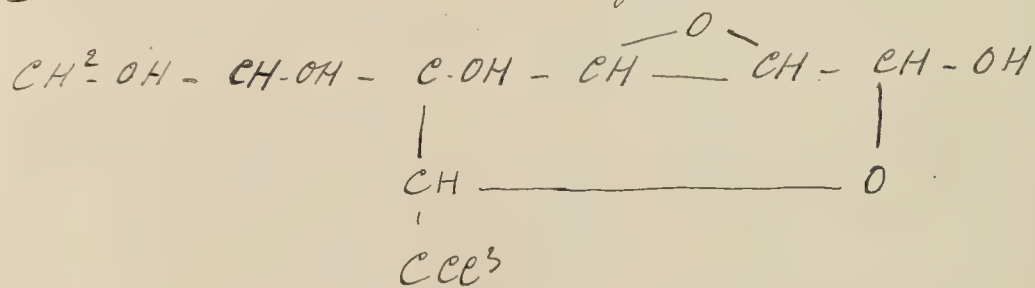 O
CH²-OH - CH-OH - C-OH - CH CH - CH - OH
CH O
CCl³